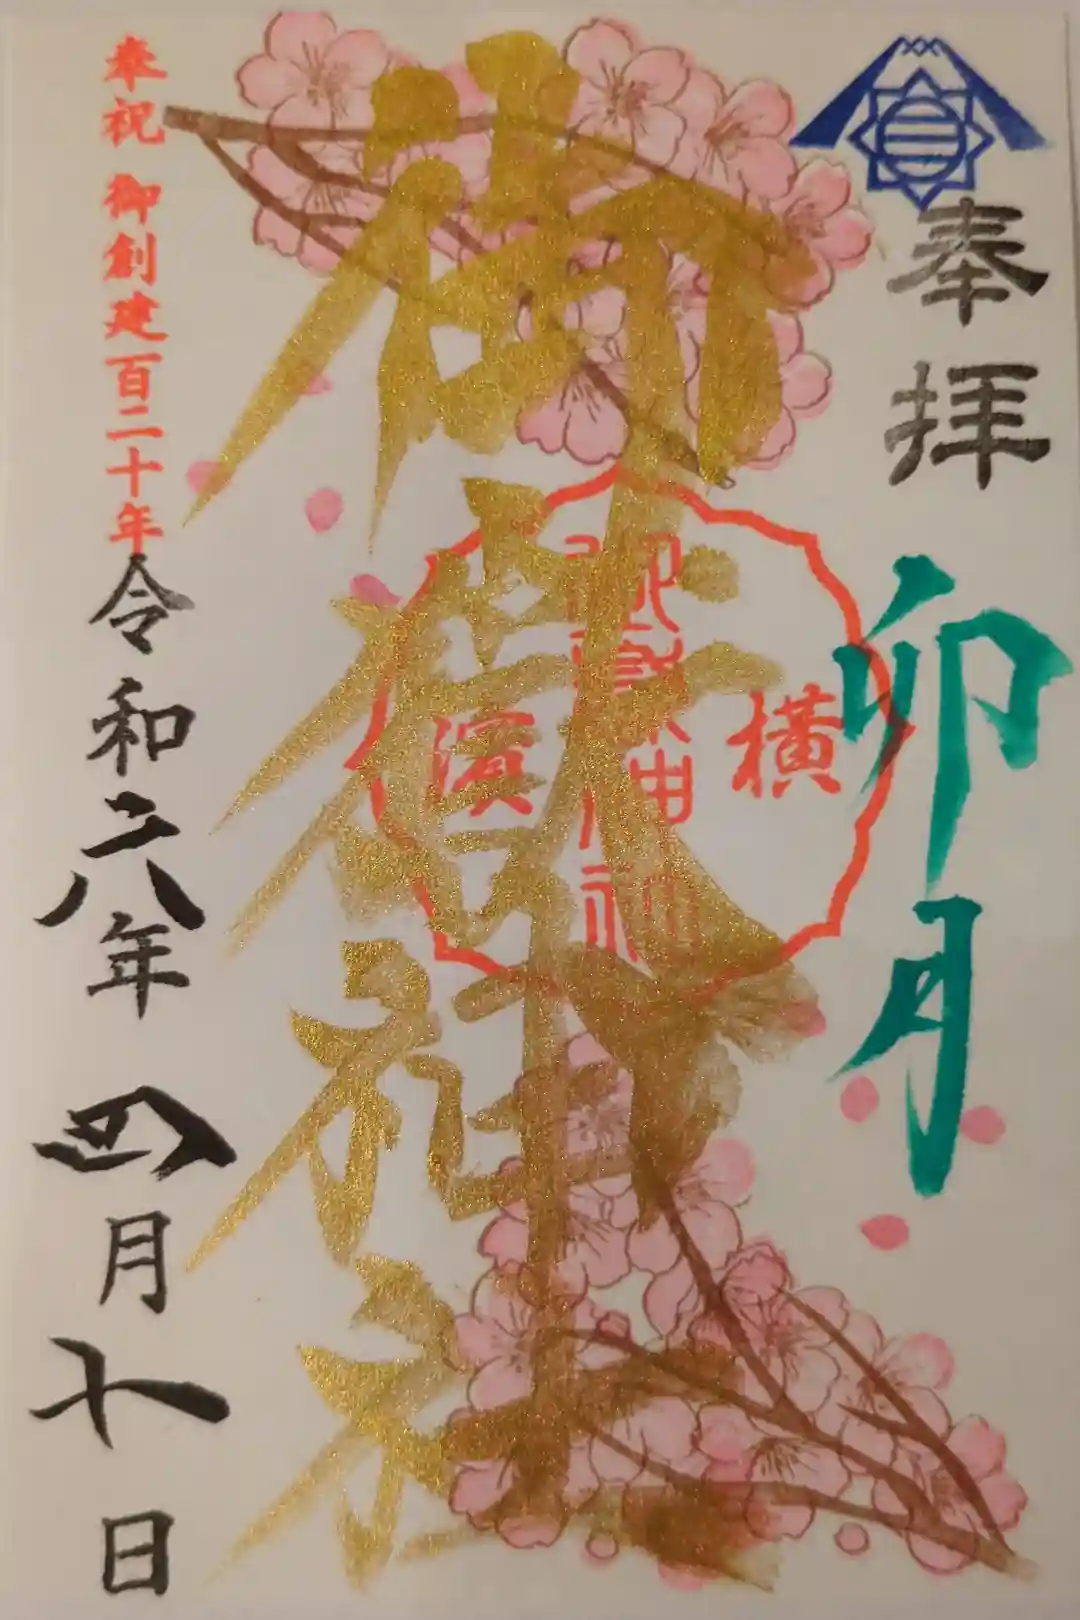 奉拝
卯月
御獄神社
横濱
奉祝 御創建百二十年
令和六年 四月十日